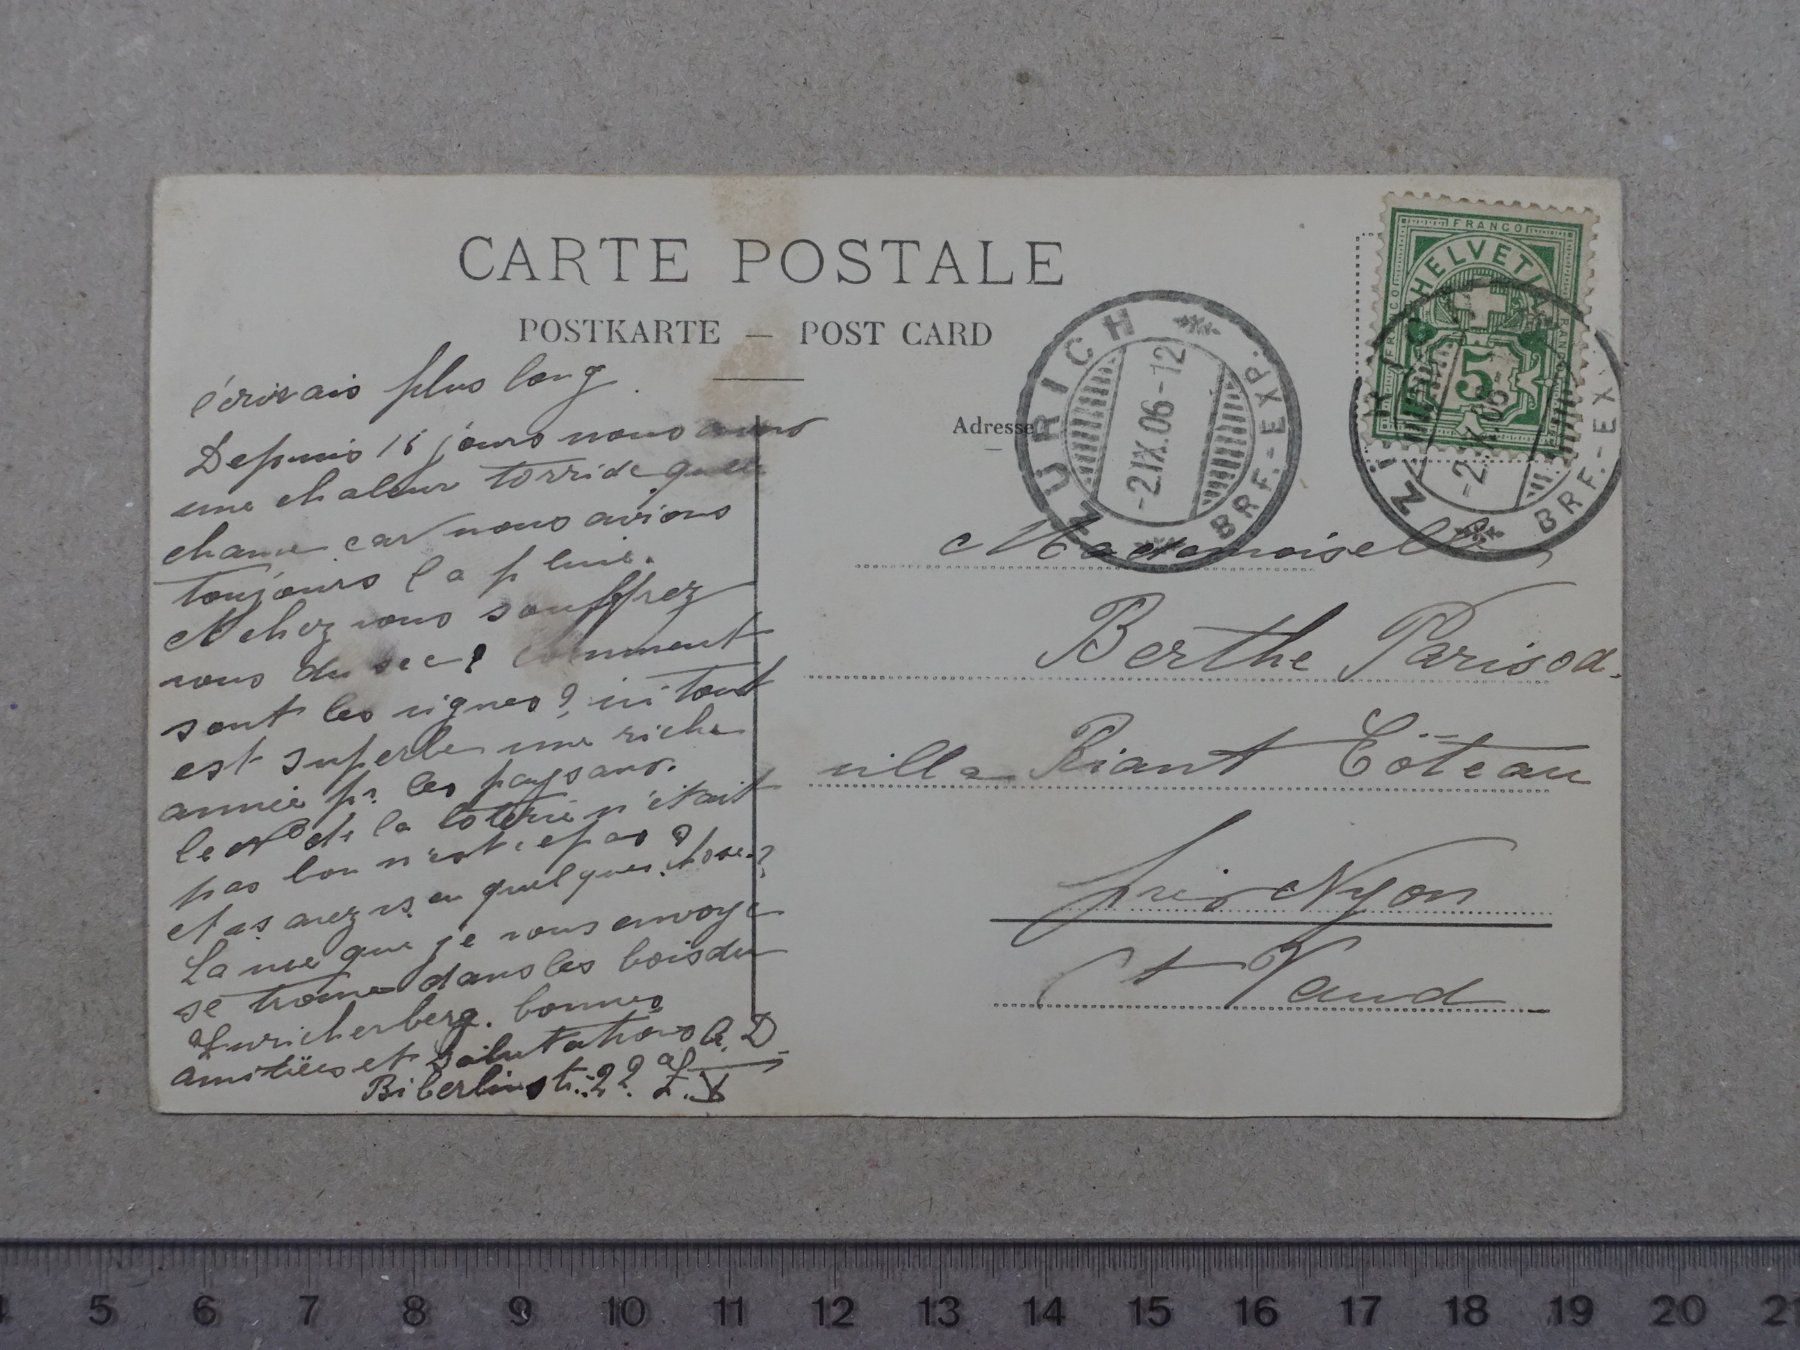 CARTE POSTALE
POSTKARTE — POST CARD
écrirais plus long.
Depuis 15 jours nous avons
une chaleur torride quelle
chance car nous avions
toujours la pluie.
chez vous souffrez
vous du sec? comment
sont les vignes? ici tout
est superbe une riche
année pr. les paysans.
le No de la loterie n'était
pas bon n'est ce pas?
et vs. avez vs. eu quelque chose?
La vue que je vous envoye
se trouve dans les bois du
Zuricherberg. bonnes
amitiés et salutations C. D
Biberlinstr. 22 Z. V
Adresse
Mademoiselle
Berthe Parisod.
villa Riant Côteau
près Nyon
Ct Vaud
ZÜRICH
-2.IX.06-12
BRF.-EXP.
FRANCO
HELVETIA
FRANCO
FRANCO
5
ZÜRICH
-2.IX.06-
BRF.-EXP
4 5 6 7 8 9 10 11 12 13 14 15 16 17 18 19 20 21